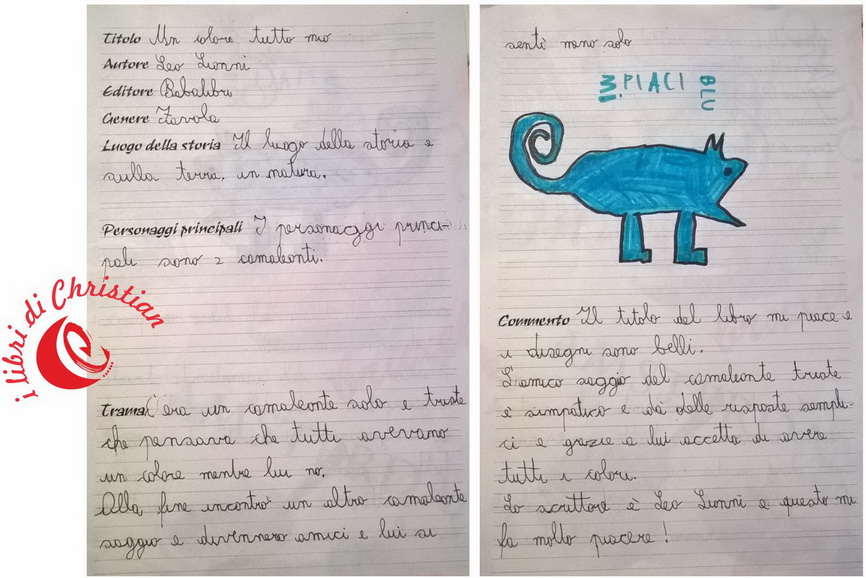 Titolo Un colore tutto mio
Autore Leo Lionni
Editore Babalibri
Genere Favola
Luogo della storia Il luogo della storia è
sulla terra, in natura.
Personaggi principali I personaggi princi-
pali sono 2 camaleonti.
i libri di Christian
Trama C'era un camaleonte solo e triste
che pensava che tutti avevano
un colore mentre lui no.
Alla fine incontrò un altro camaleonte
saggio e divennero amici e lui si
sentì meno solo
M. PIACI BLU
Commento Il titolo del libro mi piace e
i disegni sono belli.
L'amico saggio del camaleonte triste
è simpatico e dà delle risposte sempli-
ci e grazie a lui accetta di avere
tutti i colori.
Lo scrittore è Leo Lionni e questo mi
fa molto piacere!